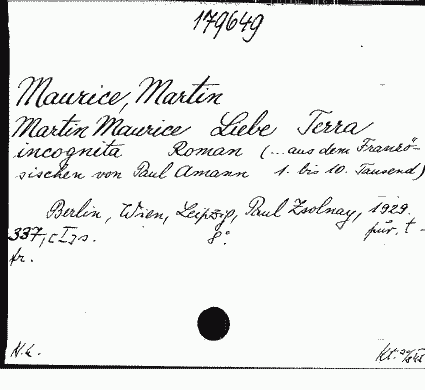 179649
Maurice, Martin
Martin Maurice Liebe Terra
incognita Roman (... aus dem Franzö-
sischen von Paul Amann 1. bis 10. Tausend)
Berlin, Wien, Leipzig, Paul Zsolnay, 1929.
337, 8°.
fr.
N.k.